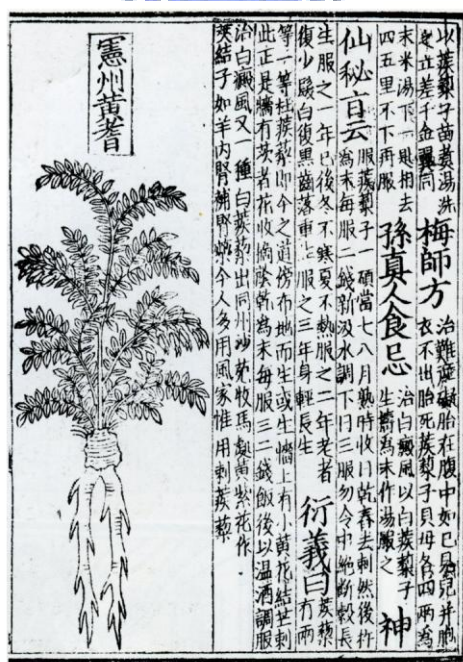 以蒺藜子苗煮湯洗
之立差千金翼同
梅師方
治難產礙胎在腹中如已見兒并胞
衣不出胎死蒺藜子貝母各四兩為
末米湯下一匙相去
四五里不下再服
孫真人食忌
治白癜風以白蒺藜子
生擣為末作湯服之
神
仙秘旨云
服蒺藜子一碩當七八月熟時收日乾舂去刺然後杵
為末每服二錢新汲水調下日三服勿令中絕斷穀長
生服之一年已後冬不寒夏不熱服之二年老者
復少髮白復黑齒落重生服之三年身輕長生
衍義曰
蒺藜
有兩
等一等杜蒺藜即今之道傍布地而生或生牆上有小黃花結芒刺
此正是牆有茨者花收摘蔭乾為末每服三二錢飯後以溫酒調服
治白癜風又一種白蒺藜出同州沙苑牧馬處黃紫花作
莢結子如羊內腎補腎藥今人多用風家惟用刺蒺藜
憲州黃耆